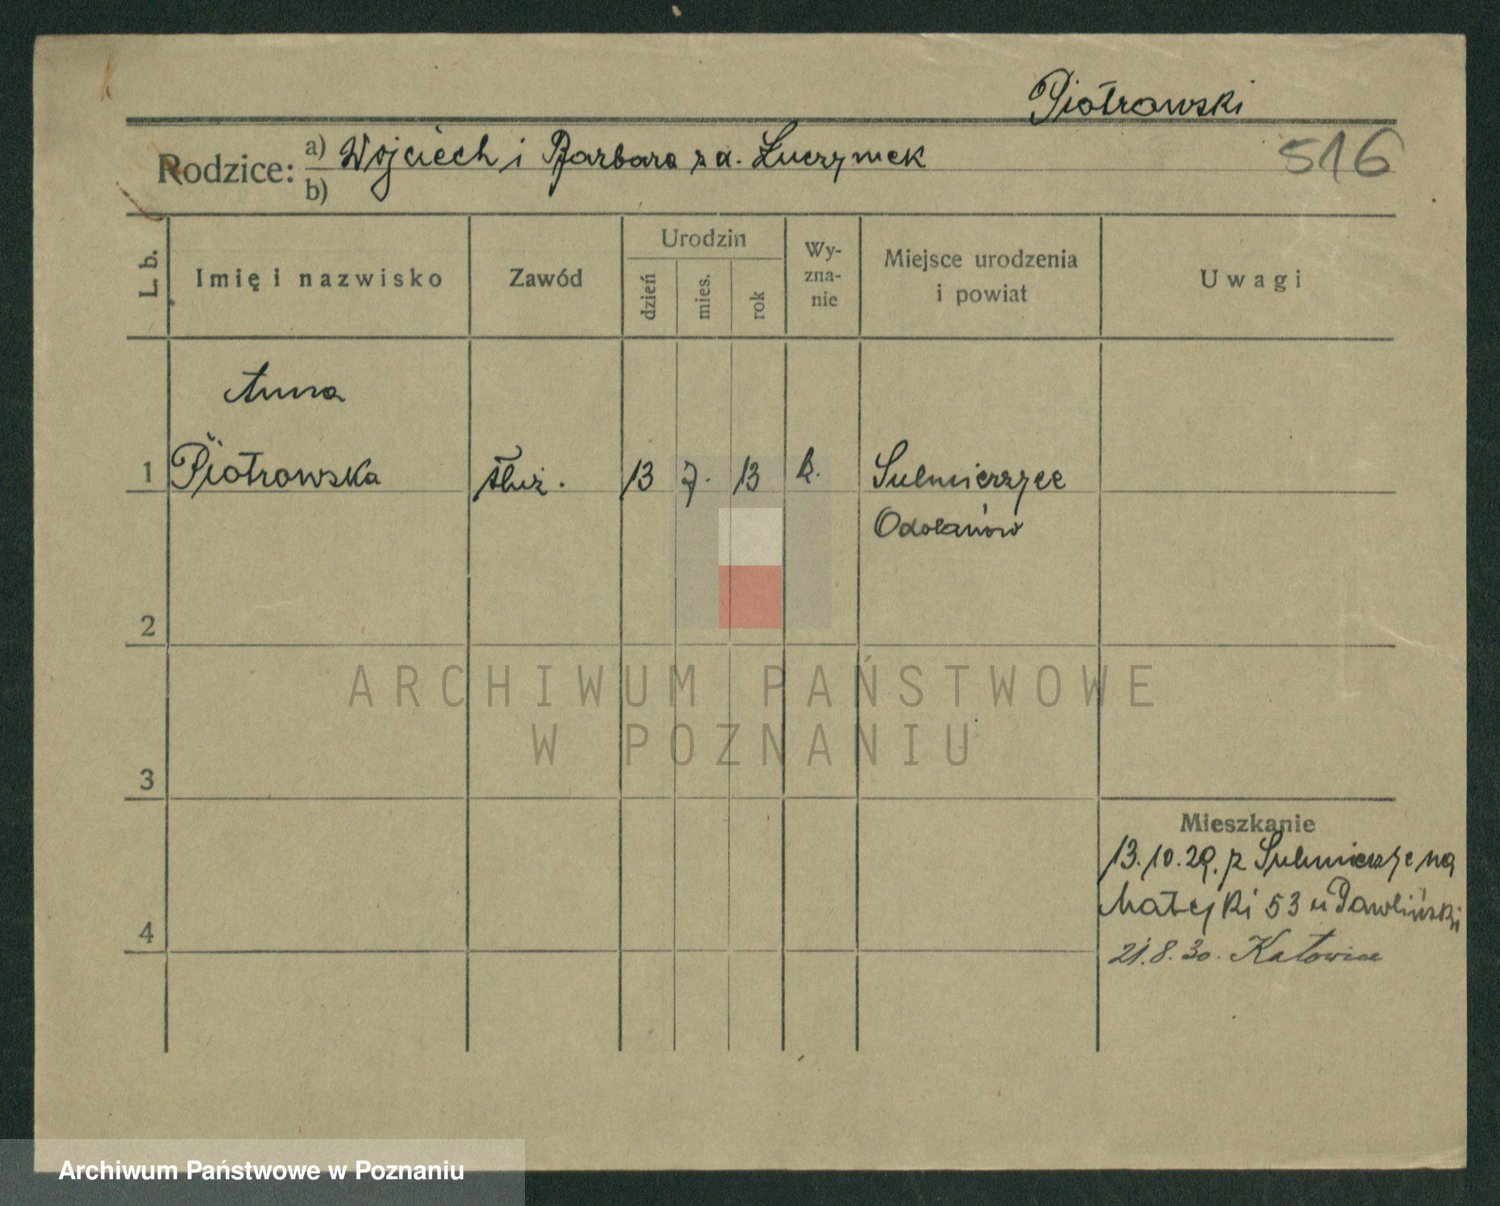 Piotrowski
516
Rodzice: a) Wojciech i Barbara z d.
b)
L. b.
Imię i nazwisko
Zawód
Urodzin
dzień
mies.
rok
Wy-
zna-
nie
Miejsce urodzenia
i powiat
Uwagi
Anna
1 Piotrowska służ. 13 7. 13 k. Sulmierzyce
Odolanów
2
ARCHIWUM PAŃSTWOWE
W POZNANIU
3
Mieszkanie
13.10.29. z Sulmierzyc na
Matejki 53 u Pawliński
4
21.8.30. Katowice
Archiwum Państwowe w Poznaniu